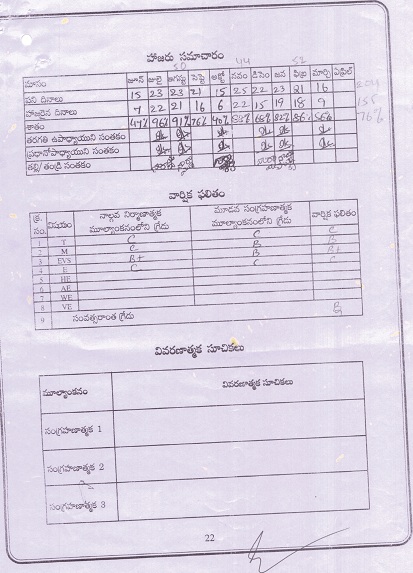 హాజరు సమాచారం
50 44 52
మాసం జూన్ జులై ఆగస్టు సెప్టె అక్టో నవం డిసెం జన ఫిబ్ర మార్చి ఏప్రిల్
పని దినాలు 15 23 23 21 15 25 22 23 21 16
హాజరైన దినాలు 7 22 21 16 6 22 15 19 18 9 155
శాతం 47% 96% 91% 76% 40% 88% 68% 82% 86% 56% 76%
తరగతి ఉపాధ్యాయుని సంతకం
ప్రధానోపాధ్యాయుని సంతకం
తల్లి/తండ్రి సంతకం
వార్షిక ఫలితం
క్ర. సం. విషయం నాల్గవ నిర్మాణాత్మక మూల్యాంకనంలోని గ్రేడు మూడవ సంగ్రహణాత్మక మూల్యాంకనంలోని గ్రేడు వార్షిక ఫలితం
1 T C C C
2 M C B B
3 EVS B+ B B+
4 E C C C
5 HE
6 AE
7 WE
8 VE
9 సంవత్సరాంత గ్రేడు B
వివరణాత్మక సూచికలు
మూల్యాంకనం వివరణాత్మక సూచికలు
సంగ్రహణాత్మక 1
సంగ్రహణాత్మక 2
సంగ్రహణాత్మక 3
22